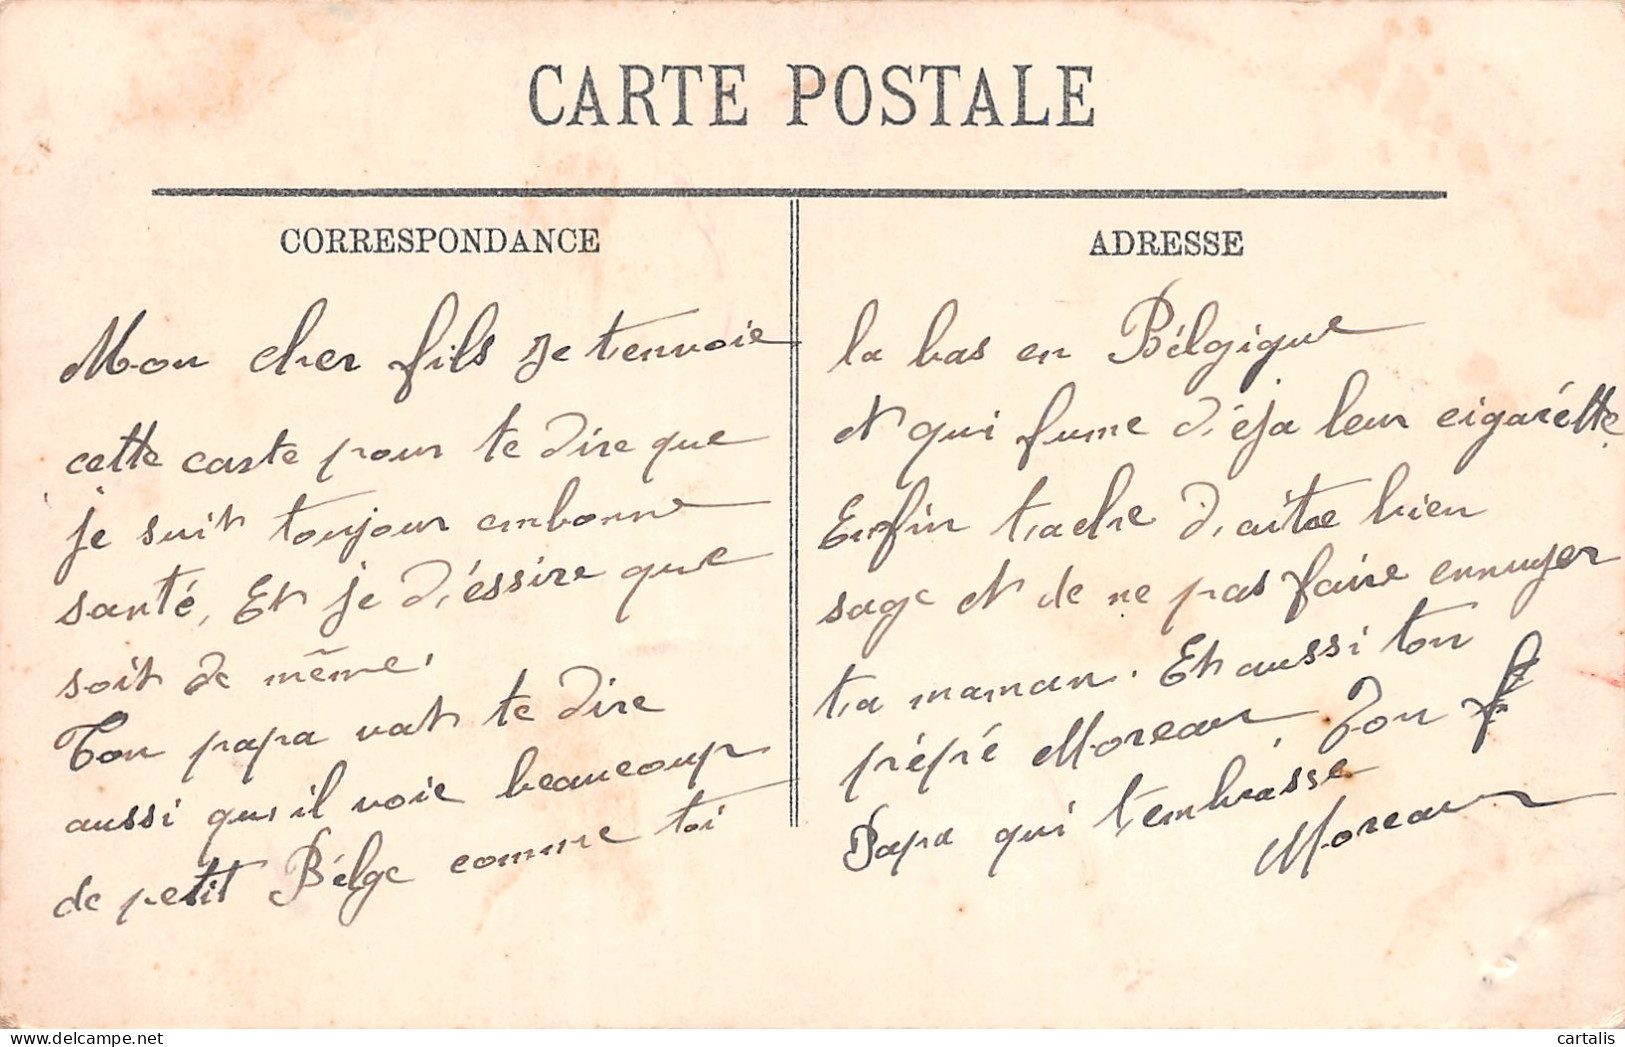 CARTE POSTALE
CORRESPONDANCE
Mon cher fils Je t'envoie
cette carte pour te dire que
je suit toujour enbonne
santé, Et je d'éssire que
soit de même.
Ton papa vat te dire
aussi qu'il voie beaucoup
de petit Bélge comme toi
ADRESSE
la bas en Bélgique
et qui fume d'éja leur cigarétte
Enfin tache d'aitre bien
sage et de ne pas faire ennuyer
ta maman. Et aussi ton
pépé Moreau, Ton
Papa qui t'embrasse
Moreau
cartalis